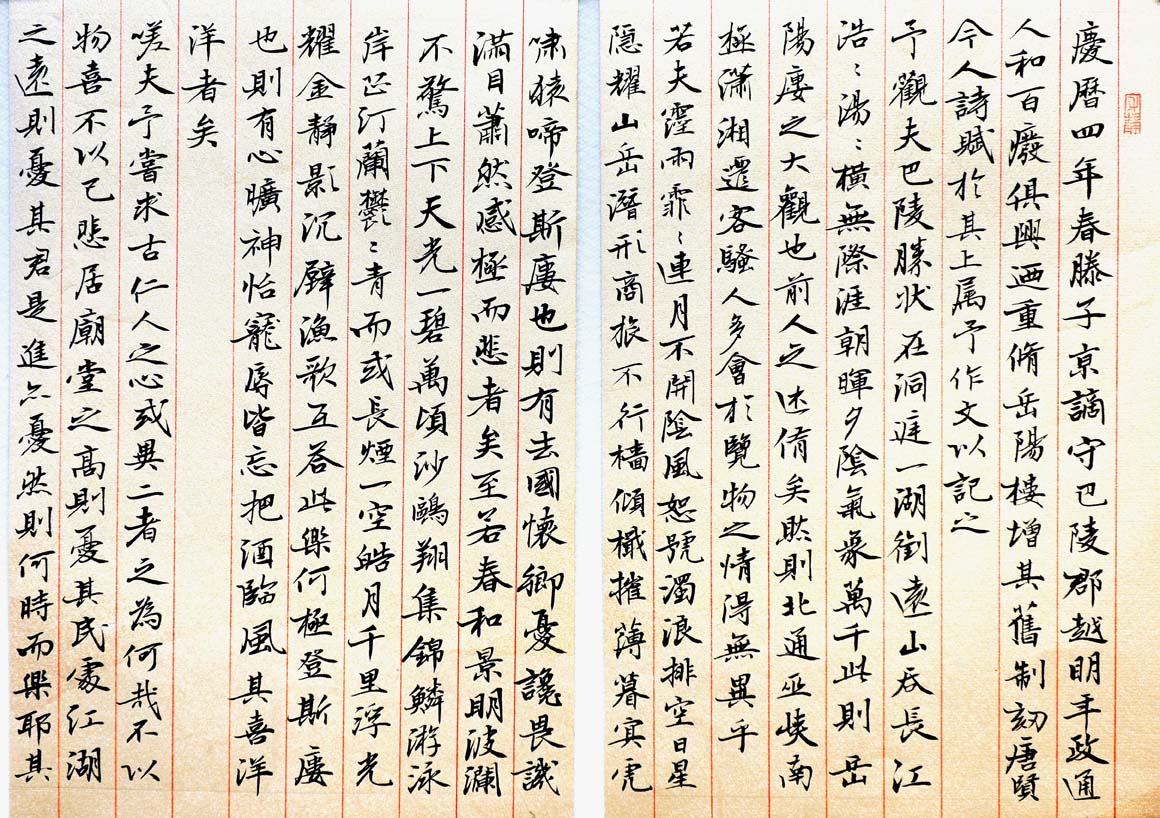 慶曆四年春滕子京謫守巴陵郡越明年政通
人和百廢俱興迺重脩岳陽樓增其舊制刻唐賢
今人詩賦於其上属予作文以記之
予觀夫巴陵勝狀在洞庭一湖銜遠山吞長江
浩〻湯〻橫無際涯朝暉夕陰氣象萬千此則岳
陽廔之大觀也前人之述俻矣然則北通巫峽南
極瀟湘遷客騷人多會於覽物之情得無異乎
若夫霪雨霏〻連月不開陰風怒號濁浪排空日星
隱耀山岳潛形商旅不行檣傾檝摧薄暮冥虎
嘯猿啼登斯廔也則有去國懷鄉憂讒畏譏
滿目蕭然感極而悲者矣至若春和景明波瀾
不驚上下天光一碧萬頃沙鷗翔集錦鱗游泳
岸芷汀蘭鬱〻青而或長煙一空皓月千里浮光
耀金靜影沉璧漁歌互荅此樂何極登斯廔
也則有心曠神怡寵辱皆忘把酒臨風其喜洋
洋者矣
嗟夫予嘗求古仁人之心或異二者之為何哉不以
物喜不以己悲居廟堂之高則憂其民處江湖
之遠則憂其君是進亦憂然則何時而樂耶其